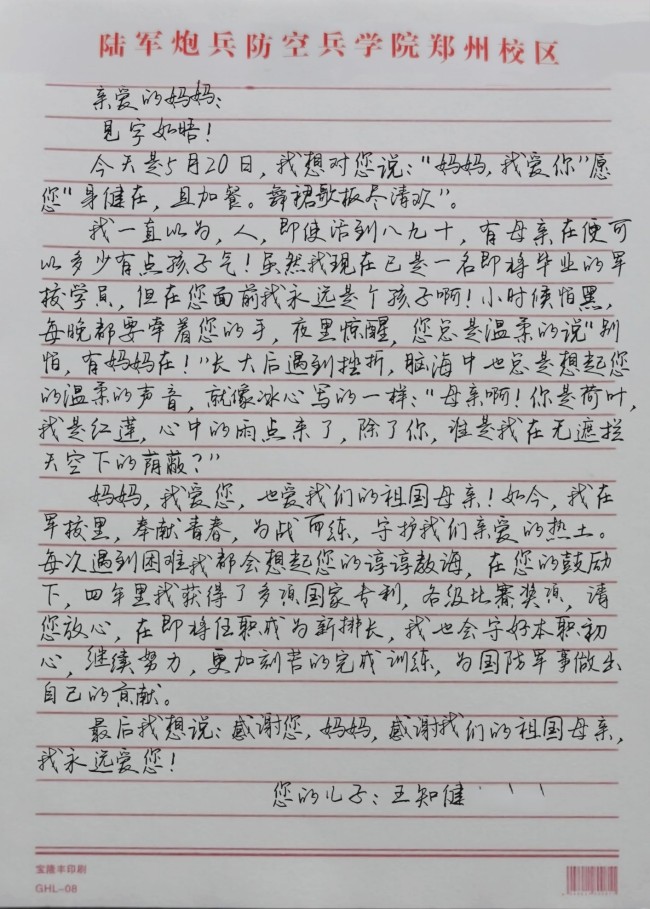 陆军炮兵防空兵学院郑州校区
亲爱的妈妈：
见字如晤！
今天是5月20日，我想对您说："妈妈，我爱你"愿
您"身健在，且加餐。舞裙歌板尽清欢"。
我一直以为，人，即使活到八九十，有母亲在便可
以多少有点孩子气！虽然我现在已是一名即将毕业的军
校学员，但在您面前我永远是个孩子啊！小时候怕黑，
每晚都要牵着您的手，夜里惊醒，您总是温柔的说"别
怕，有妈妈在！"长大后遇到挫折，脑海中也总是想起您
的温柔的声音，就像冰心写的一样："母亲啊！你是荷叶，
我是红莲，心中的雨点来了，除了你，谁是我在无遮拦
天空下的荫蔽？"
妈妈，我爱您，也爱我们的祖国母亲！如今，我在
军校里，奉献青春，为战而练，守护我们亲爱的热土。
每次遇到困难我都会想起您的谆谆教诲，在您的鼓励
下，四年里我获得了多项国家专利，各级比赛奖项，请
您放心，在即将任职成为新排长，我也会守好本职初
心，继续努力，更加刻苦的完成训练，为国防军事做出
自己的贡献。
最后我想说：感谢您，妈妈，感谢我们的祖国母亲，
我永远爱您！
您的儿子：王知健
宝隆丰印刷
GHL-08